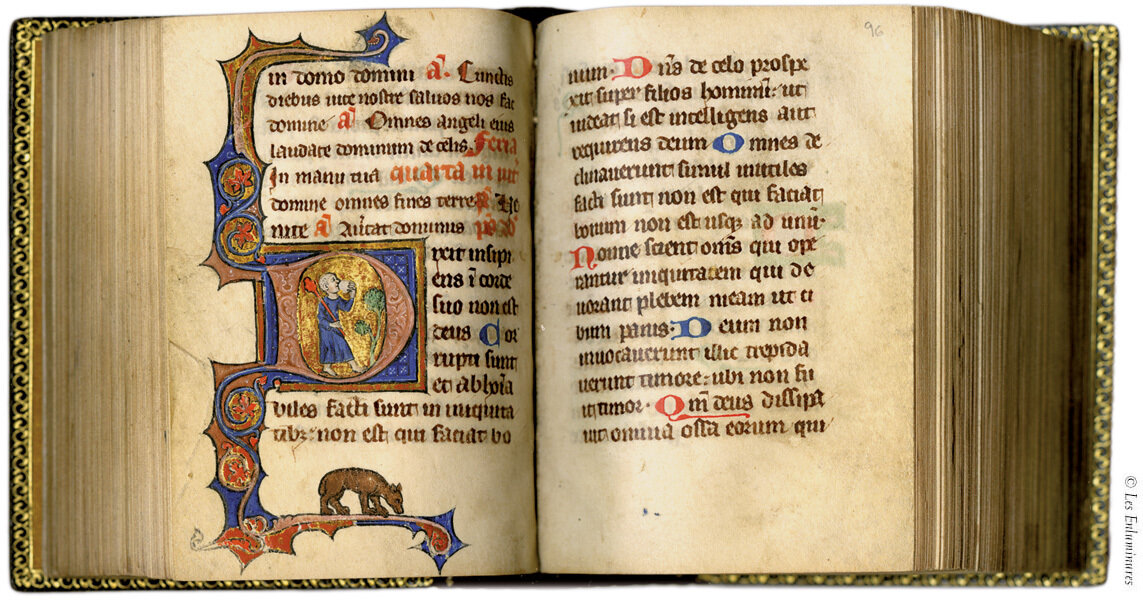 in domo domini a. Cunctis
diebus uite nostre saluos nos fac
domine a Omnes angeli eius
laudate dominum de celis. Feria
In manu tua quarta in uit
domine omnes fines terre ps Ve
nite a Auertat dominus ps
Dixit insipi
ens i corde
suo non est
deus Cor
rupti sunt
et abhoīa
biles facti sunt in iniquita
tibz: non est qui faciat bo
96
num. Dn̄s de celo prospe
xit super filios hominū: ut
uideat si est intelligens aut
requirens deum Omnes de
clinauerunt simul inutiles
facti sunt non est qui faciat
bonum non est usqz ad unū.
Nonne scient om̄s qui ope
rantur iniquitatem qui de
uorant plebem meam ut ci
bum panis: Deum non
inuocauerunt illic trepida
uerunt timore: ubi non fu
it timor. Qm̄ deus dissipa
uit omnia ossa eorum qui
© Les Enluminures